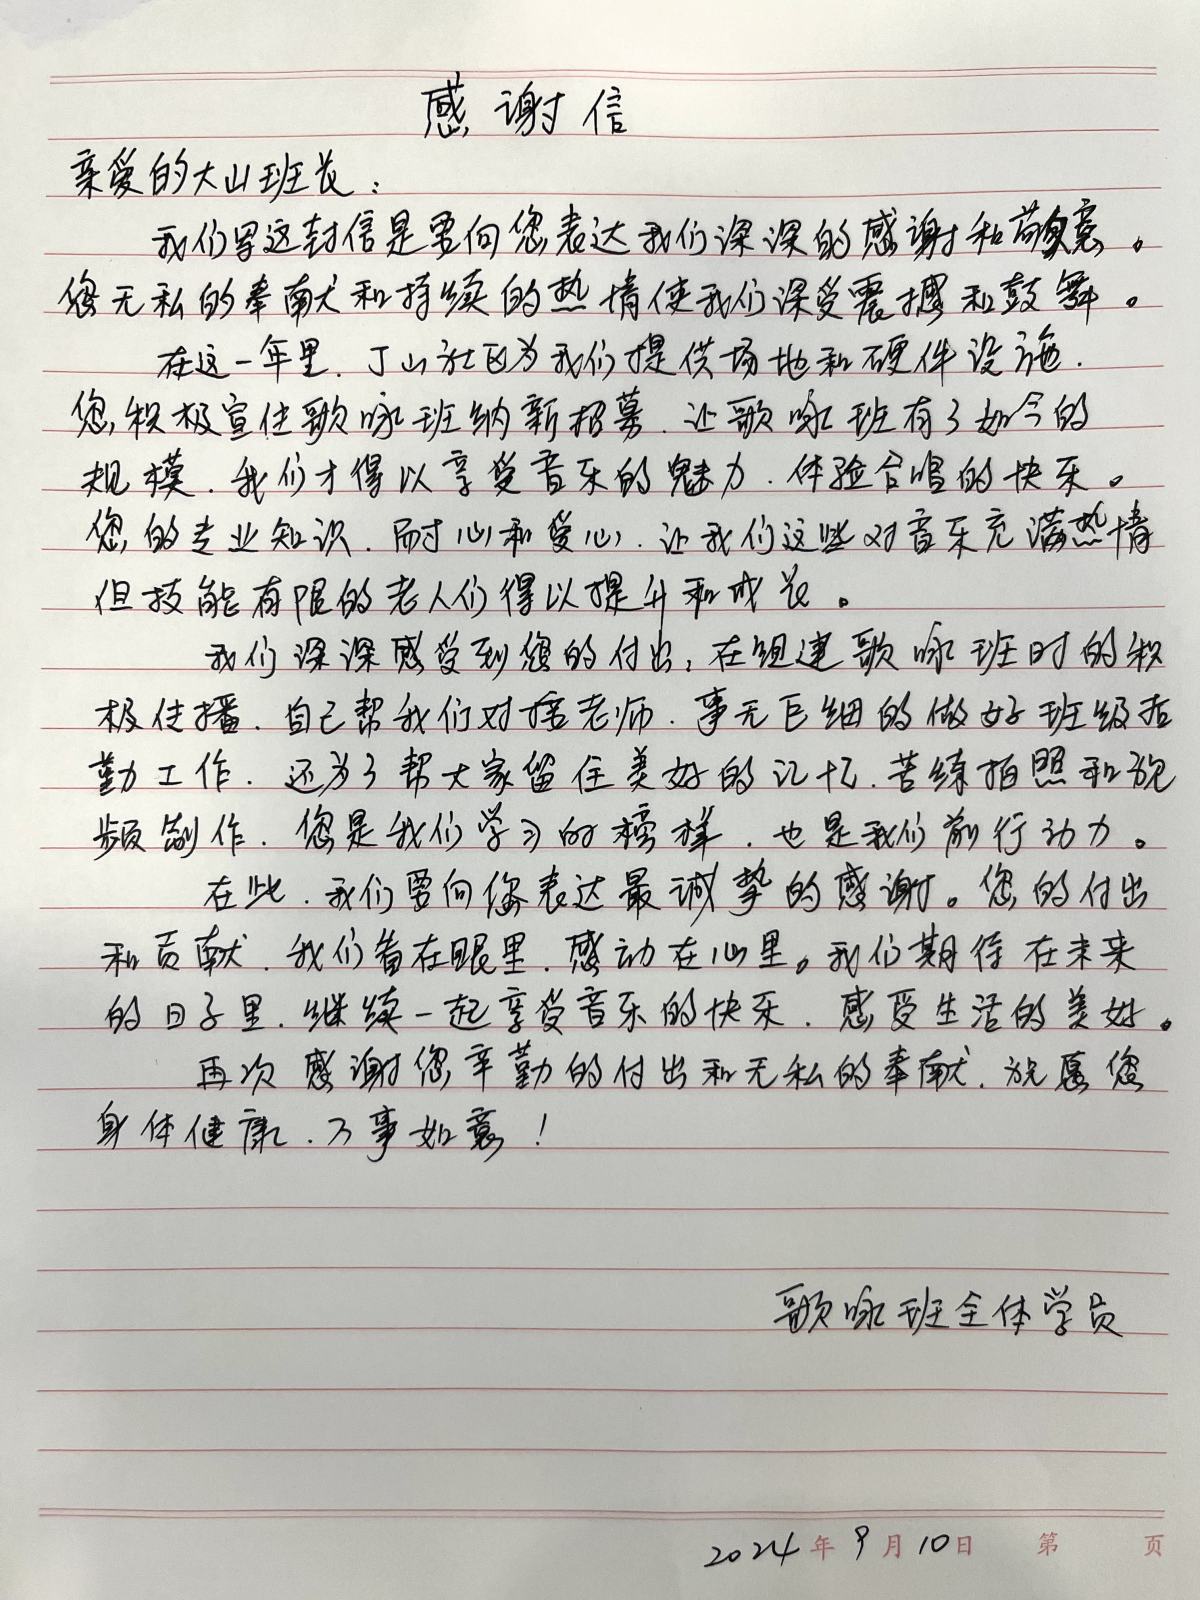 感谢信
亲爱的大山班长：
我们写这封信是要向您表达我们深深的感谢和敬意。
您无私的奉献和持续的热情使我们深受震撼和鼓舞。
在这一年里，丁山社区为我们提供场地和硬件设施，
您积极宣传歌咏班纳新招募，让歌咏班有了如今的
规模，我们才得以享受音乐的魅力，体验合唱的快乐。
您的专业知识，耐心和爱心，让我们这些对音乐充满热情
但技能有限的老人们得以提升和成长。
我们深深感受到您的付出，在组建歌咏班时的积
极传播，自己帮我们对接老师，事无巨细的做好班级后
勤工作，还为了帮大家留住美好的记忆，苦练拍照和视
频制作，您是我们学习的榜样，也是我们前行动力。
在此，我们要向您表达最诚挚的感谢。您的付出
和贡献，我们看在眼里，感动在心里。我们期待在未来
的日子里，继续一起享受音乐的快乐，感受生活的美好。
再次感谢您辛勤的付出和无私的奉献，祝愿您
身体健康，万事如意！
歌咏班全体学员
2024年9月10日 第 页